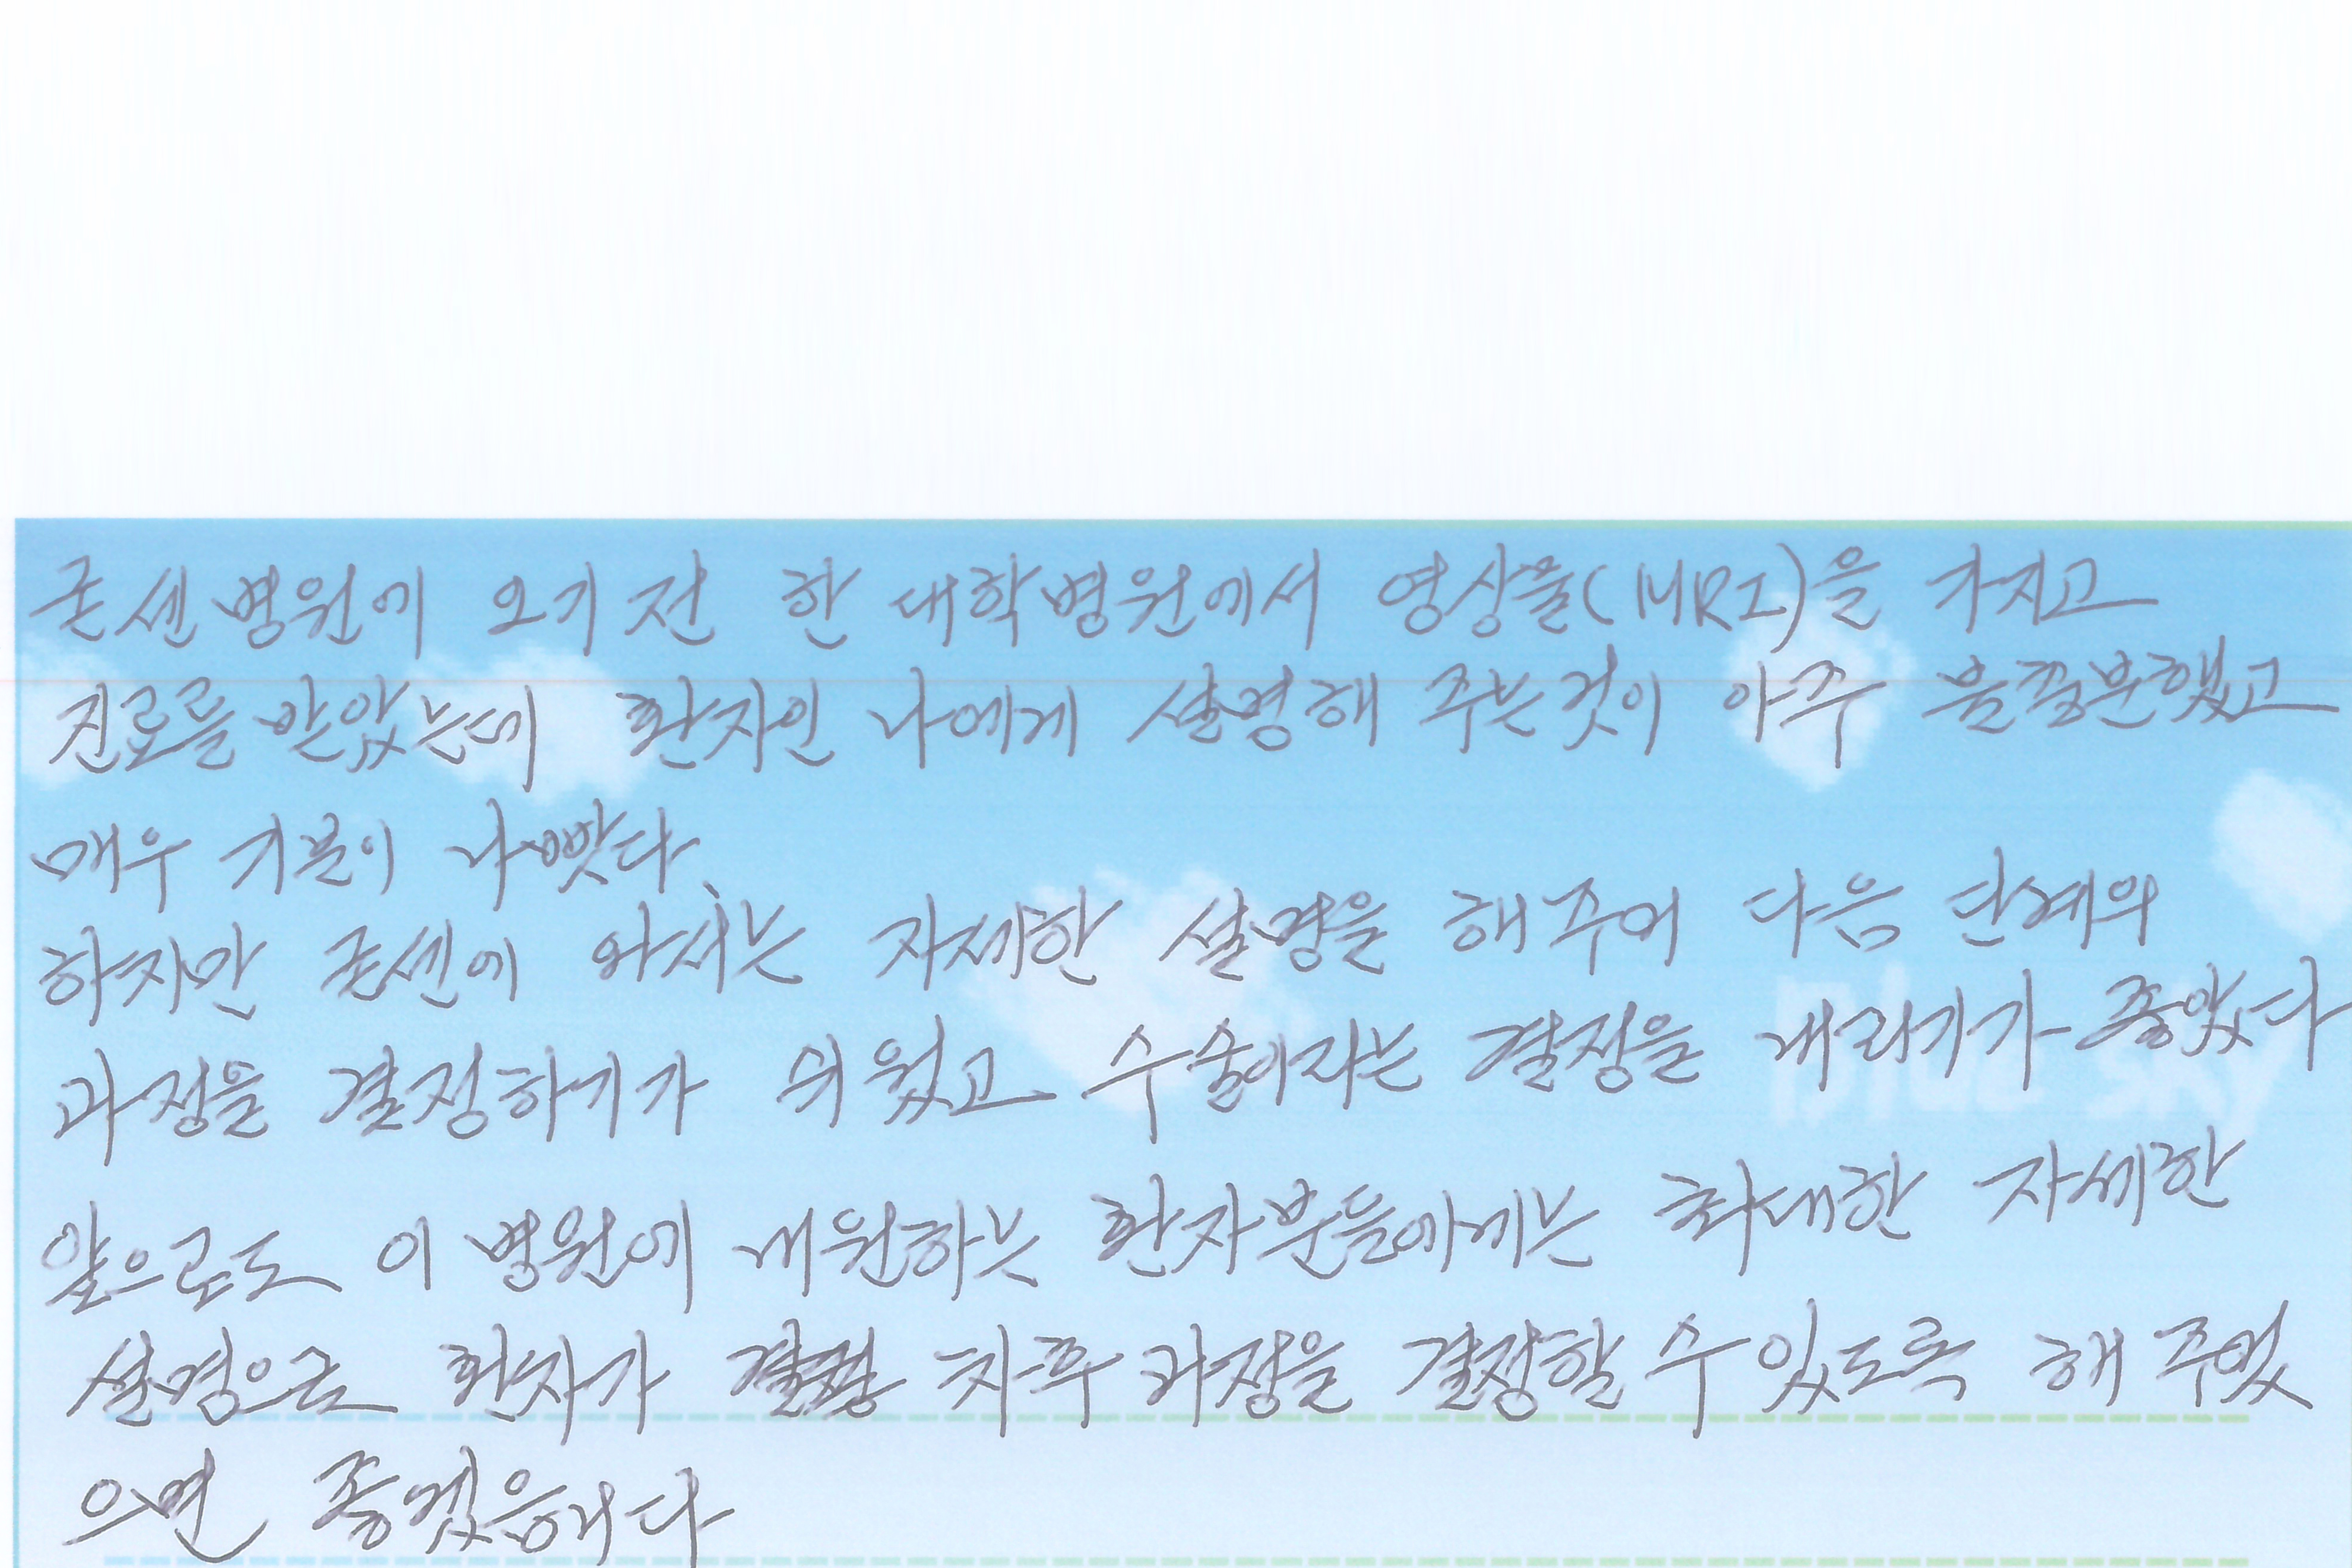 굳센병원에 오기 전 한 대학병원에서 영상물(MRI)을 가지고
진료를 받았는데 환자인 나에게 설명해 주는것이 아주 불충분했고
매우 기분이 나빴다.
하지만 굳센에 와서는 자세한 설명을 해주어 다음 단계의
과정을 결정하기가 쉬웠고 수술이라는 결정을 내리기가 좋았다
Blue sky
앞으로도 이 병원에 내원하는 환자분들에게는 최대한 자세한
설명으로 환자가 차후 과정을 결정할 수 있도록 해 주었
으면 좋겠습니다